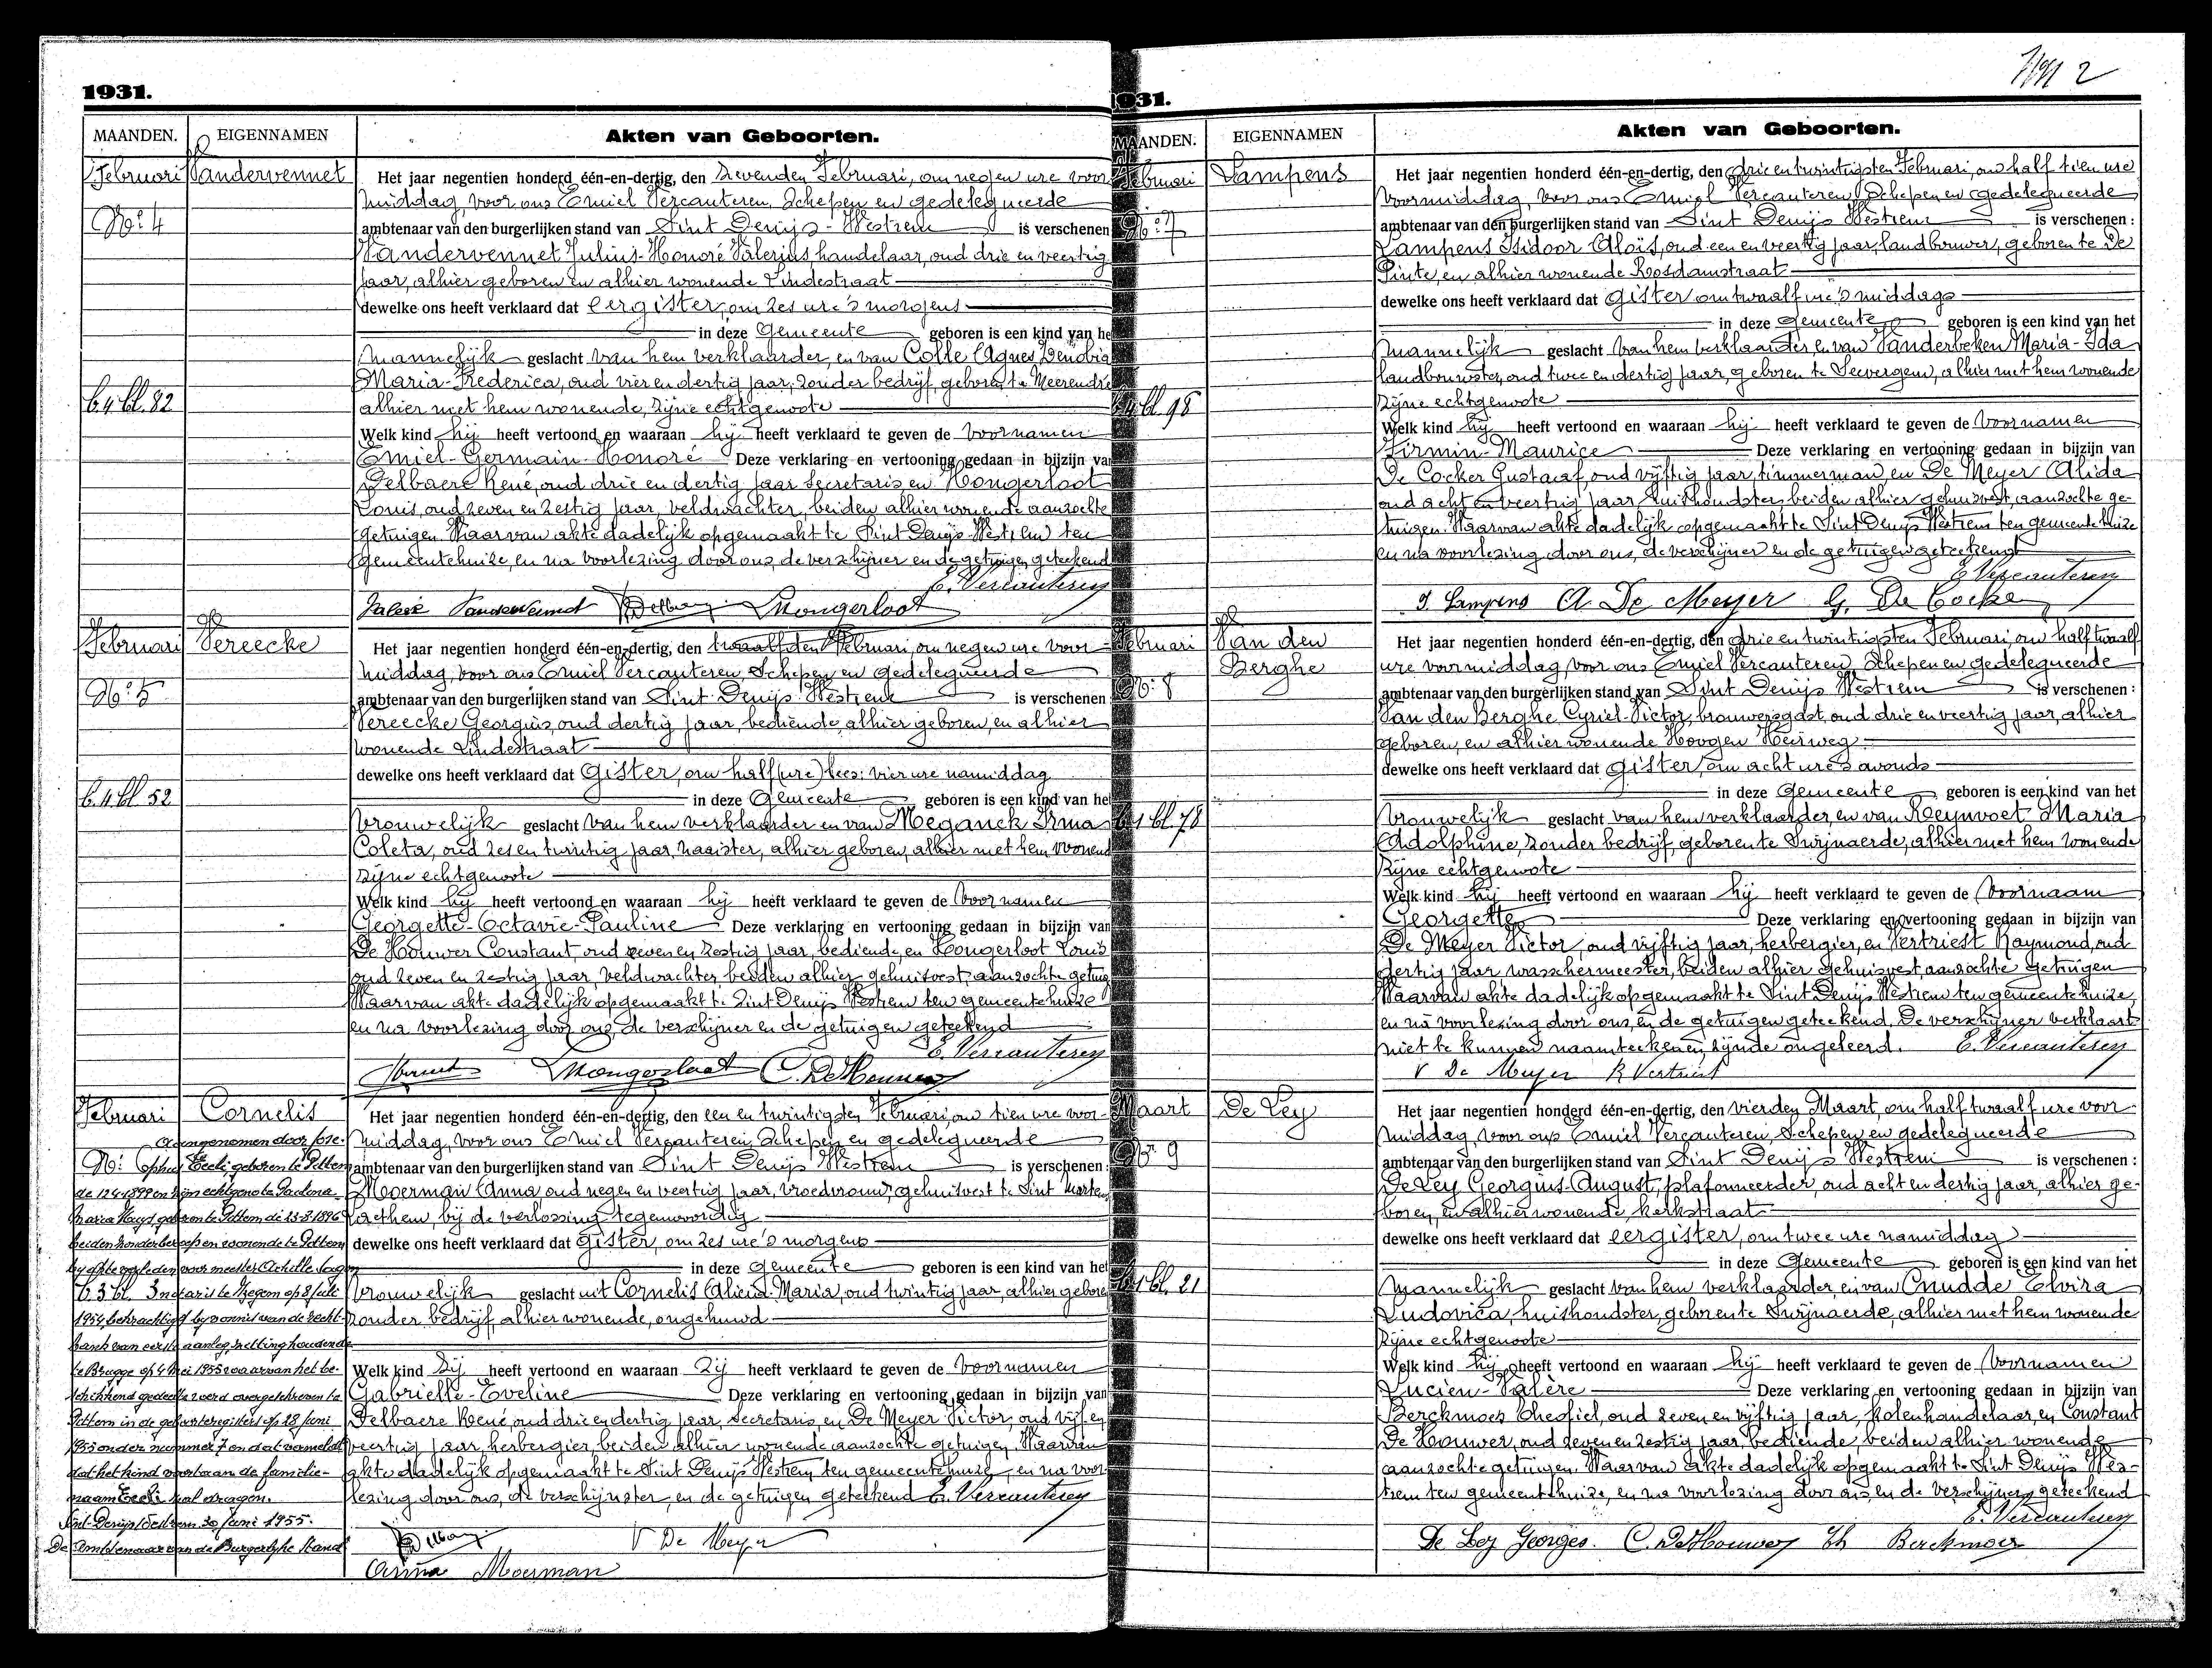 1931.
MAANDEN. EIGENNAMEN Akten van Geboorten.
Februari Vandervennet Het jaar negentien honderd één-en-dertig, den zevenden Februari, om negen ure voor
middag, voor ons Emiel Vercauteren, Schepen en gedelegueerde
No: 4 ambtenaar van den burgerlijken stand van Sint Denijs-Westrem is verschenen
Vandervennet Julius-Honoré Valerius handelaar, oud drie en veertig
jaar, alhier geboren en alhier wonende Lindestraat
dewelke ons heeft verklaard dat eergister, om zes ure 's morgens
in deze Gemeente geboren is een kind van he
mannelijk geslacht van hem verklaarder, en van Colle Agnes Zenobia
Maria-Frederica, oud vier en dertig jaar, zonder bedrijf, geboren te Meerendre
b.4 bl. 82 alhier met hem wonende, zijne echtgenoote
Welk kind hij heeft vertoond en waaraan hij heeft verklaard te geven de voornamen
Emiel-Germain-Honoré Deze verklaring en vertooning gedaan in bijzijn va
Delbaere René, oud drie en dertig jaar Secretaris en Hongerloot
Louis, oud zeven en zestig jaar, veldwachter, beiden alhier wonende aanzochte
getuigen Waarvan akte dadelijk opgemaakt te Sint Denijs-Westrem ten
gemeentehuize, en na voorlezing door ons, de verschijner en de getuigen geteekend
E. Vercauteren
Valère Vandervennet Delbaere LHongerloot
Februari Vereecke Het jaar negentien honderd één-en-dertig, den twaalfden Februari, om negen ure voor-
middag, voor ons Emiel Vercauteren, Schepen en gedelegueerde
No: 5 ambtenaar van den burgerlijken stand van Sint Denijs Westrem is verschenen
Vereecke Georgius, oud dertig jaar, bediende, alhier geboren, en alhier
wonende Lindestraat
dewelke ons heeft verklaard dat Gister, om half (ure) lees: vier ure namiddag
b.4 bl 52 in deze Gemeente geboren is een kind van het
vrouwelijk geslacht van hem verklaarder en van Meganck Irma
Coleta, oud zes en twintig jaar, naaister, alhier geboren, alhier met hem wonend
zijne echtgenoote
Welk kind hij heeft vertoond en waaraan hij heeft verklaard te geven de voornamen
Georgette-Octavie-Pauline Deze verklaring en vertooning gedaan in bijzijn van
De Houwer Constant, oud zeven en zestig jaar, bediende, en Hongerloot Louis
oud zeven en zestig jaar, veldwachter beiden alhier gehuisvest, aanzochte getuig
Waarvan akte dadelijk opgemaakt te Sint Denijs Westrem ten gemeentehuize
en na voorlezing door ons, de verschijner en de getuigen geteekend
E. Vercauteren
LHongerloot C. DeHouwer
Februari Cornelis Het jaar negentien honderd één-en-dertig, den een en twintigsten Februari, om tien ure voor-
middag, voor ons Emiel Vercauteren, Schepen en gedelegueerde
No: ambtenaar van den burgerlijken stand van Sint Denijs Westrem is verschenen:
Moerman Anna, oud negen en veertig jaar, vroedvrouw, gehuisvest te Sint Marten
Lathem, bij de verlossing tegenwoordig
dewelke ons heeft verklaard dat gister, om zes ure 's morgens
in deze Gemeente geboren is een kind van het
b.3 bl. vrouwelijk geslacht uit Cornelis Aliena-Maria, oud twintig jaar, alhier gebore
zonder bedrijf, alhier wonende, ongehuwd
Welk kind zij heeft vertoond en waaraan zij heeft verklaard te geven de voornamen
Gabrielle-Eveline Deze verklaring en vertooning gedaan in bijzijn van
Delbaere René, oud drie en dertig jaar, secretaris, en De Meyer Victor, oud vijf en
veertig jaar, herbergier, beiden alhier wonende aanzochte getuigen. Waarvan
akte dadelijk opgemaakt te Sint Denijs Westrem ten gemeentehuize, en na voor-
lezing door ons, de verschijnster, en de getuigen geteekend E. Vercauteren
Delbaere V De Meyer
Anna Moerman
Aangenomen door Jose-
phus Eecli geboren te Pittem
de 12-4-1899 en zijn echtgenote
Maria geboren te Pittem de 23-8-1896
beiden zonder beroep en wonende te Pittem
by akte verleden voor meester Achille
Notaris te Izegem op 8 Juli
1954, bekrachtigd by vonnis van de recht-
bank van eerste aanleg, zitting houdende
te Brugge op 4 Mei 1955 waarvan het be-
schikkend gedeelte werd overgeschreven te
Pittem in de geboorteregisters op 18 Juni
1955 onder nummer 7 en dat vermeldt
dat het kind voortaan de familie-
naam Eecli zal dragen.
Sint-Denijs Westrem 30 Juni 1955.
De Ambtenaar van de Burgerlyke Stand
2
1931.
MAANDEN. EIGENNAMEN Akten van Geboorten.
Februari Lampens Het jaar negentien honderd één-en-dertig, den drie en twintigsten Februari, om half tien ure
voormiddag, voor ons Emiel Vercauteren, Schepen en gedelegueerde
No: 7 ambtenaar van den burgerlijken stand van Sint Denijs Westrem is verschenen:
Lampens Isidoor Aloïs, oud een en veertig jaar, landbouwer, geboren te De
Pinte, en alhier wonende Rosdamstraat
dewelke ons heeft verklaard dat gister om twaalf ure 's middags
in deze Gemeente geboren is een kind van het
mannelijk geslacht van hem verklaarder, en van Vanderbeken Maria-Ida
landbouwster, oud twee en dertig jaar, geboren te Seevergem, alhier met hem wonende
b.4 bl. 98 zijne echtgenoote
Welk kind hij heeft vertoond en waaraan hij heeft verklaard te geven de voornamen
Firmin-Maurice Deze verklaring en vertooning gedaan in bijzijn van
De Cocker Gustaaf, oud vijftig jaar, timmerman, en De Meyer Alida
oud acht en veertig jaar, huishoudster, beiden alhier gehuisvest, aanzochte ge-
tuigen. Waarvan akte dadelijk opgemaakt te Sint Denijs Westrem ten gemeentehuize
en na voorlezing door ons, de verschijner en de getuigen geteekend
E Vercauteren
I. Lampens A. De Meyer G. De Cocker
Februari Van den Het jaar negentien honderd één-en-dertig, den drie en twintigsten Februari, om half twaalf
Berghe ure voormiddag, voor ons Emiel Vercauteren, Schepen en gedelegueerde
No: 8 ambtenaar van den burgerlijken stand van Sint Denijs Westrem is verschenen:
Van den Berghe Cyriel-Victor, brouwersgast, oud drie en veertig jaar, alhier
geboren, en alhier wonende Hoogen Heirweg
dewelke ons heeft verklaard dat gister, om acht ure 's avonds
in deze Gemeente geboren is een kind van het
b.1 bl. 78 vrouwelijk geslacht van hem verklaarder, en van Reynvoet Maria
Adolphine, zonder bedrijf, geboren te Swijnaerde, alhier met hem wonende
zijne echtgenoote
Welk kind hij heeft vertoond en waaraan hij heeft verklaard te geven de voornaam
Georgette Deze verklaring en vertooning gedaan in bijzijn van
De Meyer Victor, oud vijftig jaar, herbergier, en Vertriest Raymond, oud
dertig jaar wasschermeester, beiden alhier gehuisvest, aanzochte getuigen
Waarvan akte dadelijk opgemaakt te Sint Denijs Westrem ten gemeentehuize,
en na voorlezing door ons, en de getuigen geteekend. De verschijner verklaart
niet te kunnen naamteekenen, zijnde ongeleerd. E. Vercauteren
V De Meyer R Vertriest
Maart De Ley Het jaar negentien honderd één-en-dertig, den vierden Maart, om half twaalf ure voor-
middag, voor ons Emiel Vercauteren, Schepen en gedelegueerde
No: 9 ambtenaar van den burgerlijken stand van Sint Denijs Westrem is verschenen:
De Ley Georgius-August, plafonneerder, oud acht en dertig jaar, alhier ge-
boren, en alhier wonende, kerkstraat
dewelke ons heeft verklaard dat eergister, om twee ure namiddag
in deze Gemeente geboren is een kind van het
b.1 bl. 21 mannelijk geslacht van hem verklaarder, en van Cnudde Elvira
Ludovica, huishoudster, geboren te Swijnaerde, alhier met hem wonende
zijne echtgenoote
Welk kind hij heeft vertoond en waaraan hij heeft verklaard te geven de voornamen
Lucien-Valère Deze verklaring en vertooning gedaan in bijzijn van
Berckmoes Theofiel, oud zeven en vijftig jaar, kolenhandelaar, en Constant
De Houwer, oud zeven en zestig jaar, bediende, beiden alhier wonende
aanzochte getuigen. Waarvan akte dadelijk opgemaakt te Sint Denijs Wes-
trem ten gemeentehuize, en na voorlezing door ons, en de verschijners geteekend
E. Vercauteren
De Ley Georges. C. DeHouwer Th Berckmoes